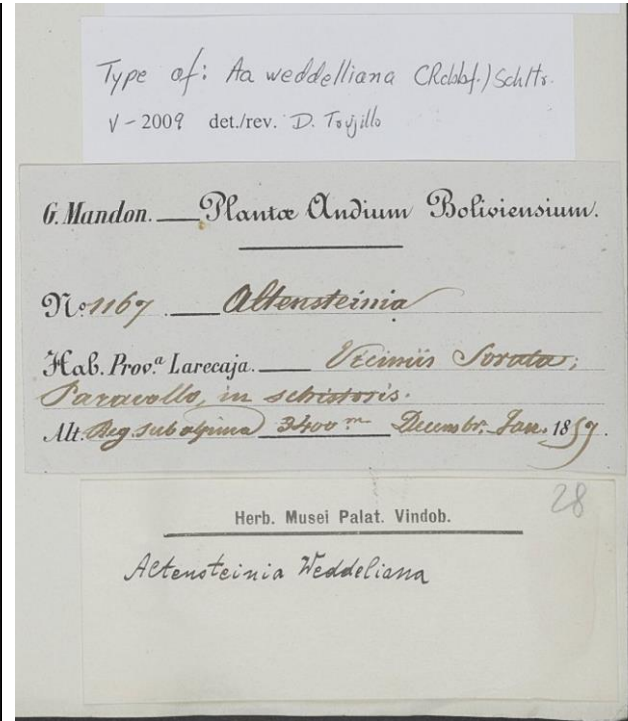 Type of: Aa weddelliana (Rchb.f.) Schltr.
V-2009 det./rev. D. Trujillo
G. Mandon. Plantæ Andium Boliviensium.
No 1167. Altensteinia
Hab. Prov.a Larecaja. Viciniis Sorata;
Paracollo, in schistosis.
Alt. Reg. subalpina 3400 m Decembr. Jan. 1859.
28
Herb. Musei Palat. Vindob.
Altensteinia Weddeliana